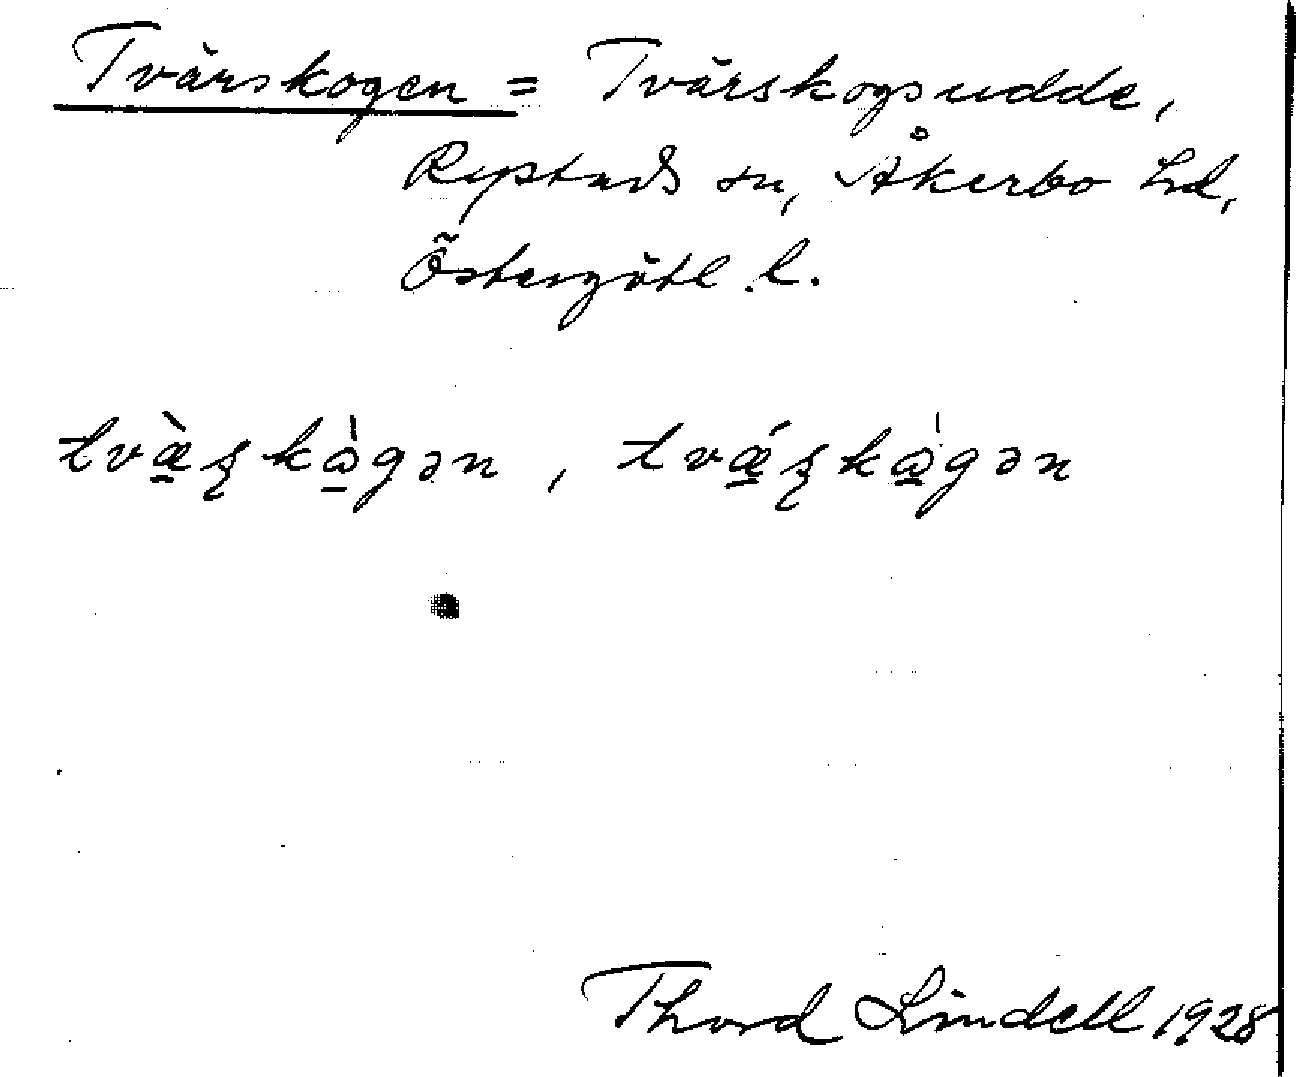 Tvärskogen = Tvärskogsudde,
Rystads sn, Åkerbo hd,
Östergötl. l.
tvæ̠̀ʂkɷ̠̀gən, tvǽ̠ʂkɷ̠̀gən
Thord Lindell 1928